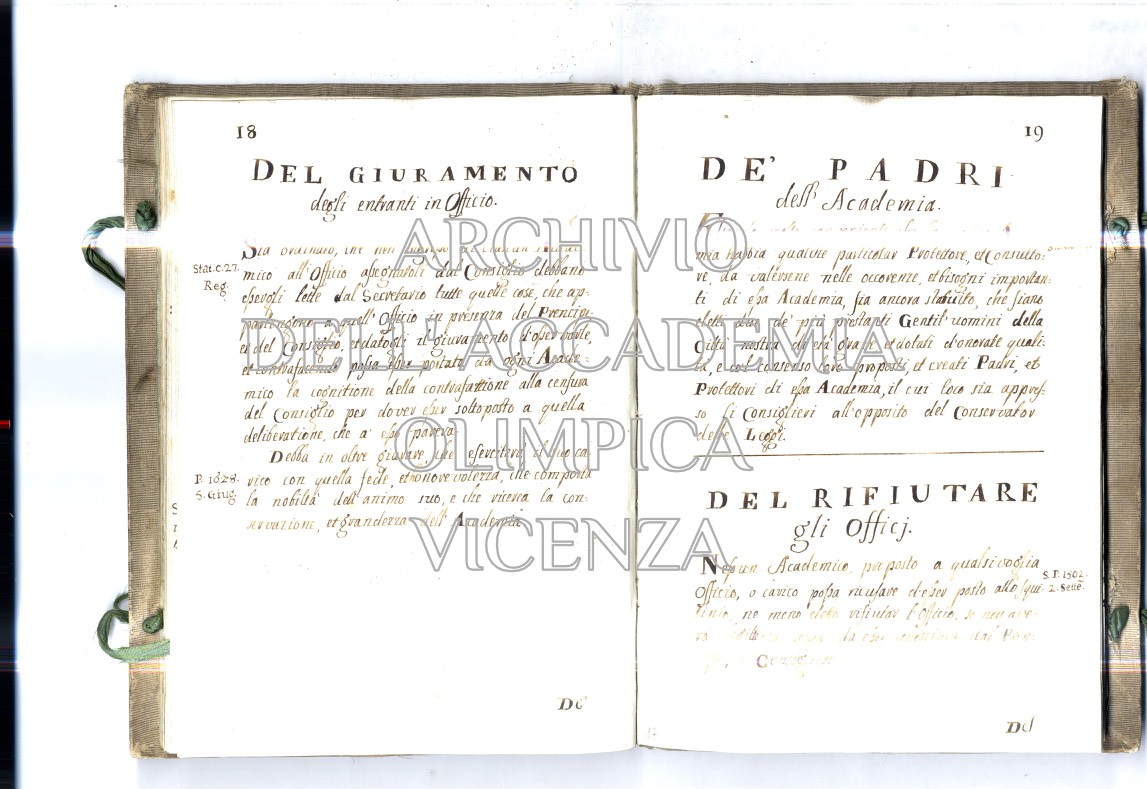 18
DEL GIURAMENTO
degli entranti in Officio.
Sia ordinato, che nell'
Stat. c. 27.
Reg.
mico all'Officio assegnatoli dal Consiglio debbano
essergli lette dal Secretario tutte quelle cose, che ap-
partengono a quell'Officio in presenza del Prencipe
et del Consiglio, et datogli il giuramento d'osservarle,
et contrafacendo possa esser portata da ogni Acade-
mico la cognitione della contrafazzione alla censura
del Consiglio per dover esser sottoposto a quella
deliberatione, che a esso parerà.
P. 1628.
5. Giug.
Debba in oltre giurare, che eserciterà il suo ca-
rico con quella fede, et honorevolezza, che comporta
la nobiltà dell'animo suo, e che ricerca la con-
servazione, et grandezza dell'Academia
De'
19
DE' PADRI
dell'Academia.
mia habbia qualche particolar Protettore, et Consulto-
re, da valersene nelle occorenze, et bisogni importan-
ti di essa Academia, sia ancora statuito, che siano
eletti due de' più prestanti Gentil'uomini della
Città nostra di età grave et dotati d'onorate quali-
tà, e col consenso loro proposti, et creati Padri, et
Protettori di essa Academia, il cui loco sia appres-
so li Consiglieri all'opposito del Conservator
delle Leggi.
DEL RIFIUTARE
gli Officj.
Nessun Academico, proposto a qualsivoglia
S. P. 1502.
2. Sette.
Officio, o carico possa ricusare d'esser posto allo squi-
tinio, ne meno eletto rifiutar l'Officio, se non ave-
rà da esser dal Pren-
Consiglio
Del
ARCHIVIO
DELL'ACCADEMIA
OLIMPICA
VICENZA